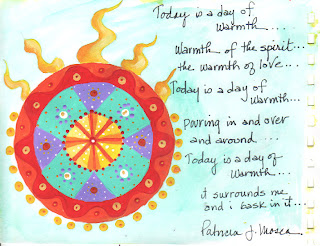 Today is a day of
Warmth....
Warmth of the spirit...
the warmth of love...
Today is a day of
Warmth...
pouring in and over
and around....
Today is a day of
Warmth...
it surrounds me
and i bask in it...
Patricia J. Mosca